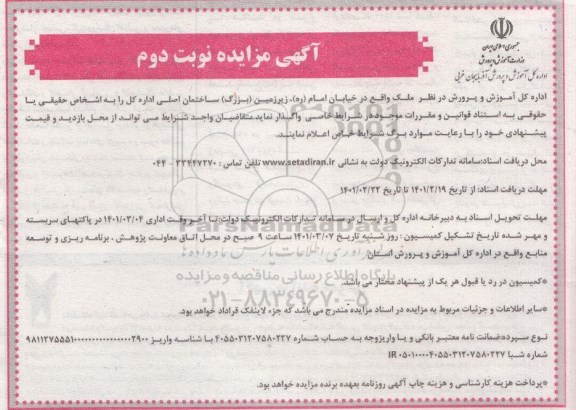 جمهوری اسلامی ایران
وزارت آموزش و پرورش
اداره کل آموزش و پرورش آذربایجان غربی
آگهی مزایده نوبت دوم
اداره کل آموزش و پرورش در نظر ملک واقع در خیابان امام (ره)، زیرزمین (بزرگ) ساختمان اصلی اداره کل را به اشخاص حقیقی یا
حقوقی به استناد قوانین و مقررات موجود در شرایط خاصی واگذار نماید.متقاضیان واجد شرایط می تواند از محل بازدید و قیمت
پیشنهادی خود را با رعایت موارد برگ شرایط خاص اعلام نمایند.
محل دریافت اسناد:سامانه تدارکات الکترونیک دولت به نشانی www.setadiran.ir تلفن تماس : ۳۳۴۴۷۲۷۰ - ۰۴۴
مهلت دریافت اسناد: از تاریخ ۱۴۰۱/۲/۱۹ تا تاریخ ۱۴۰۱/۰۲/۲۲
مهلت تحویل اسناد به دبیرخانه اداره کل و ارسال در سامانه تدارکات الکترونیک دولت: تا آخر وقت اداری ۱۴۰۱/۰۳/۰۴ در پاکتهای سربسته
و مهر شده تاریخ تشکیل کمیسیون : روز شنبه تاریخ ۱۴۰۱/۰۳/۰۷ ساعت ۹ صبح در محل اتاق معاونت پژوهش ، برنامه ریزی و توسعه
منابع واقع در اداره کل آموزش و پرورش استان
*کمیسیون در رد یا قبول هر یک از پیشنهاد مختار می باشد.
*سایر اطلاعات و جزئیات مربوط به مزایده در اسناد مزایده مندرج می باشد که جزء لاینفک قراداد خواهد بود.
نوع سپرده:ضمانت نامه معتبر بانکی و یا واریزوجه به حساب شماره ۴۰۵۵۰۳۱۲۰۷۵۸۰۲۲۷ با شناسه واریز
شماره شبا IR ۰۵۰۱۰۰۰۰۴۰۵۵۰۳۱۲۰۷۵۸۰۲۲۷
*پرداخت هزینه کارشناسی و هزینه چاپ آگهی روزنامه بعهده برنده مزایده خواهد بود.
ParsNamadData
پایگاه اطلاع رسانی مناقصه و مزایده
۰۲۱-۸۸۳۴۹۶۷۰-۵